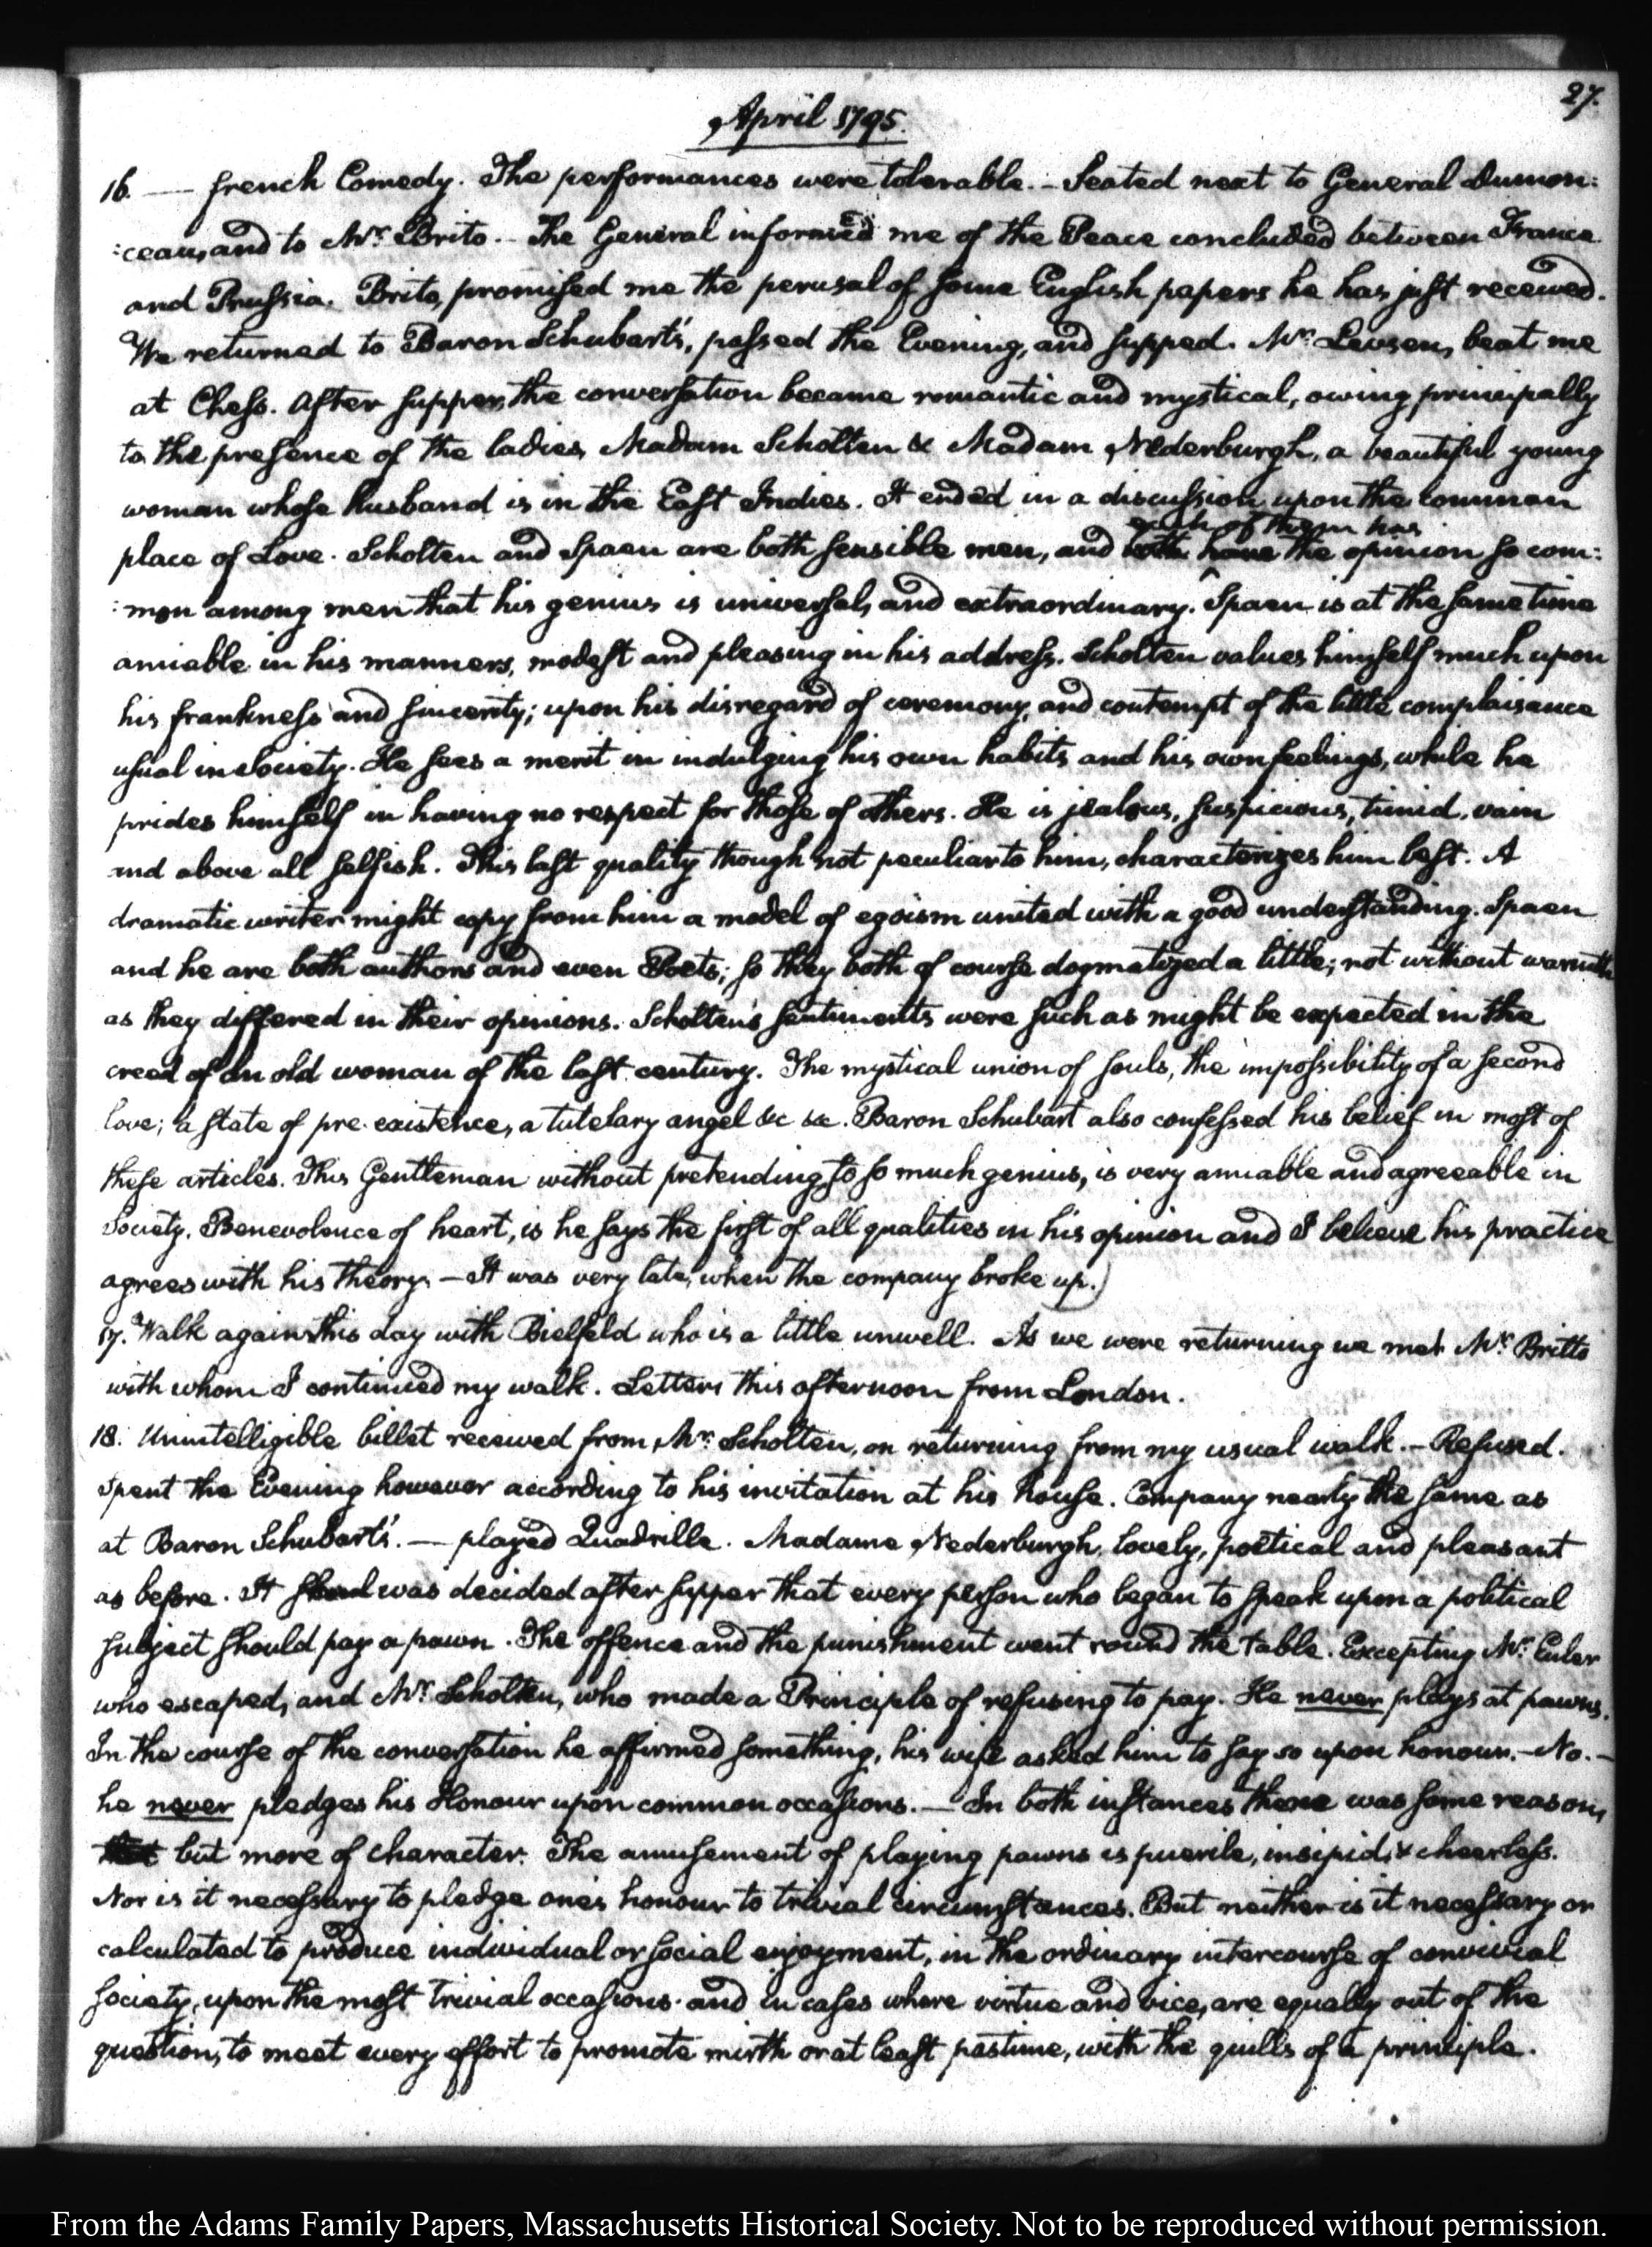 27.
April 1795.
16. — french Comedy. The performances were tolerable. – Seated next to General Dumon:
:ceau, and to Mr. Brito. – The General informed me of the Peace concluded between France
and Prussia. Brito, promised me the perusal of some English papers he has just received.
We returned to Baron Schubart's, passed the Evening, and supped. Mr. Levsen, beat me
at Chess. After supper, the conversation became romantic and mystical, owing principally
to the presence of the ladies, Madam Scholten & Madam Nederburgh, a beautiful young
woman whose husband is in the East Indies. It ended in a discussion upon the common
each of them has
place of Love. Scholten and Spaen are both sensible men, and both have the opinion so com:
:mon among men that his genius is universal, and extraordinary. Spaen is at the same time
amiable in his manners, modest and pleasing in his address. Scholten values himself much upon
his frankness and sincerity; upon his disregard of ceremony, and contempt of the little complaisance
usual in Society. He sees a merit in indulging his own habits and his own feelings, while he
prides himself in having no respect for those of others. He is jealous, suspicious, timid, vain
and above all selfish. This last quality though not peculiar to him, characterizes him best. A
dramatic writer might copy from him a model of egoism united with a good understanding. Spaen
and he are both authors and even Poets; so they both of course dogmatized a little; not without warmth
as they differed in their opinions. Scholten's sentiments were such as might be expected in the
creed of an old woman of the last century. The mystical union of souls, the impossibility of a second
love; a state of pre-existence, a tutelary angel &c &c. Baron Schubart also confessed his belief in most of
these articles. This Gentleman without pretending to so much genius, is very amiable and agreeable in
Society. Benevolence of heart, is he says the first of all qualities in his opinion and I believe his practice
agrees with his theory. – It was very late, when the company broke up.)
17. Walk again this day with Bielfeld who is a little unwell. As we were returning we met Mr. Britto
with whom I continued my walk. Letters this afternoon from London.
18. Unintelligible billet received from Mr. Scholten, on returning from my usual walk. – Refused.
Spent the Evening however according to his invitation at his house. Company nearly the same as
at Baron Schubart's. — played Quadrille. Madame Nederburgh, lovely, poetical and pleasant
as before. It was decided after supper that every person who began to speak upon a political
subject should pay a pawn. The offence and the punishment went round the table. Excepting Mr. Euler
who escaped, and Mr. Scholten, who made a Principle of refusing to pay. He never plays at pawns.
In the course of the conversation he affirmed something, his wife asked him to say so upon honour. – No. –
he never pledges his Honour upon common occasions. – In both instances there was some reason,
but more of character. The amusement of playing pawns is puerile, insipid, & cheerless.
Nor is it necessary to pledge one's honour to trivial circumstances. But neither is it necessary or
calculated to produce individual or social enjoyment, in the ordinary intercourse of convivial
society, upon the most trivial occasions. and in cases where virtue and vice, are equally out of the
question, to meet every effort to promote mirth or at least pastime, with the quills of a principle.
From the Adams Family Papers, Massachusetts Historical Society. Not to be reproduced without permission.